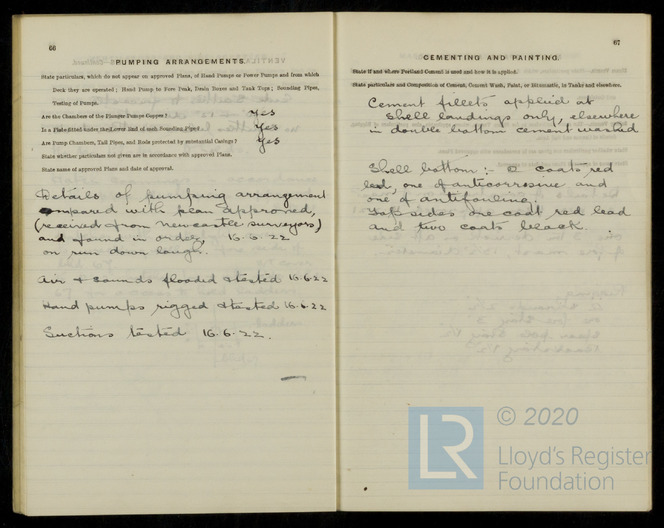 66
PUMPING ARRANGEMENTS.
State particulars, which do not appear on approved Plans, of Hand Pumps or Power Pumps and from which
Deck they are operated; Hand Pump to Fore Peak, Drain Boxes and Tank Tops; Sounding Pipes,
Testing of Pumps.
Are the Chambers of the Plunger Pumps Copper? Yes
Is a Plate fitted under the lower end of each Sounding Pipe? Yes
Are Pump Chambers, Tail Pipes, and Rods protected by substantial Casings? Yes
State whether particulars not given are in accordance with approved Plans.
State name of approved Plans and date of approval.
Details of pumping arrangement
compared with plan approved,
(received from Newcastle surveyors)
and found in order, 16.6.22
on run down
Air & Sounds flooded & tested 16.6.22
Hand pumps rigged & tested 16.6.22
Suctions tested 16.6.22.
67
CEMENTING AND PAINTING.
State if and where Portland Cement is used and how it is applied.
State particulars and Composition of Cement, Cement Wash, Paint, or Bitumastic, in Tanks and elsewhere.
Cement fillets applied at
shell landings only, elsewhere
in double bottom cement washed
Shell bottom :- 2 coats red
lead, one of anticorrosive and
one of antifouling.
Topsides one coat red lead
and two coats black.
LR
© 2020
Lloyd's Register
Foundation